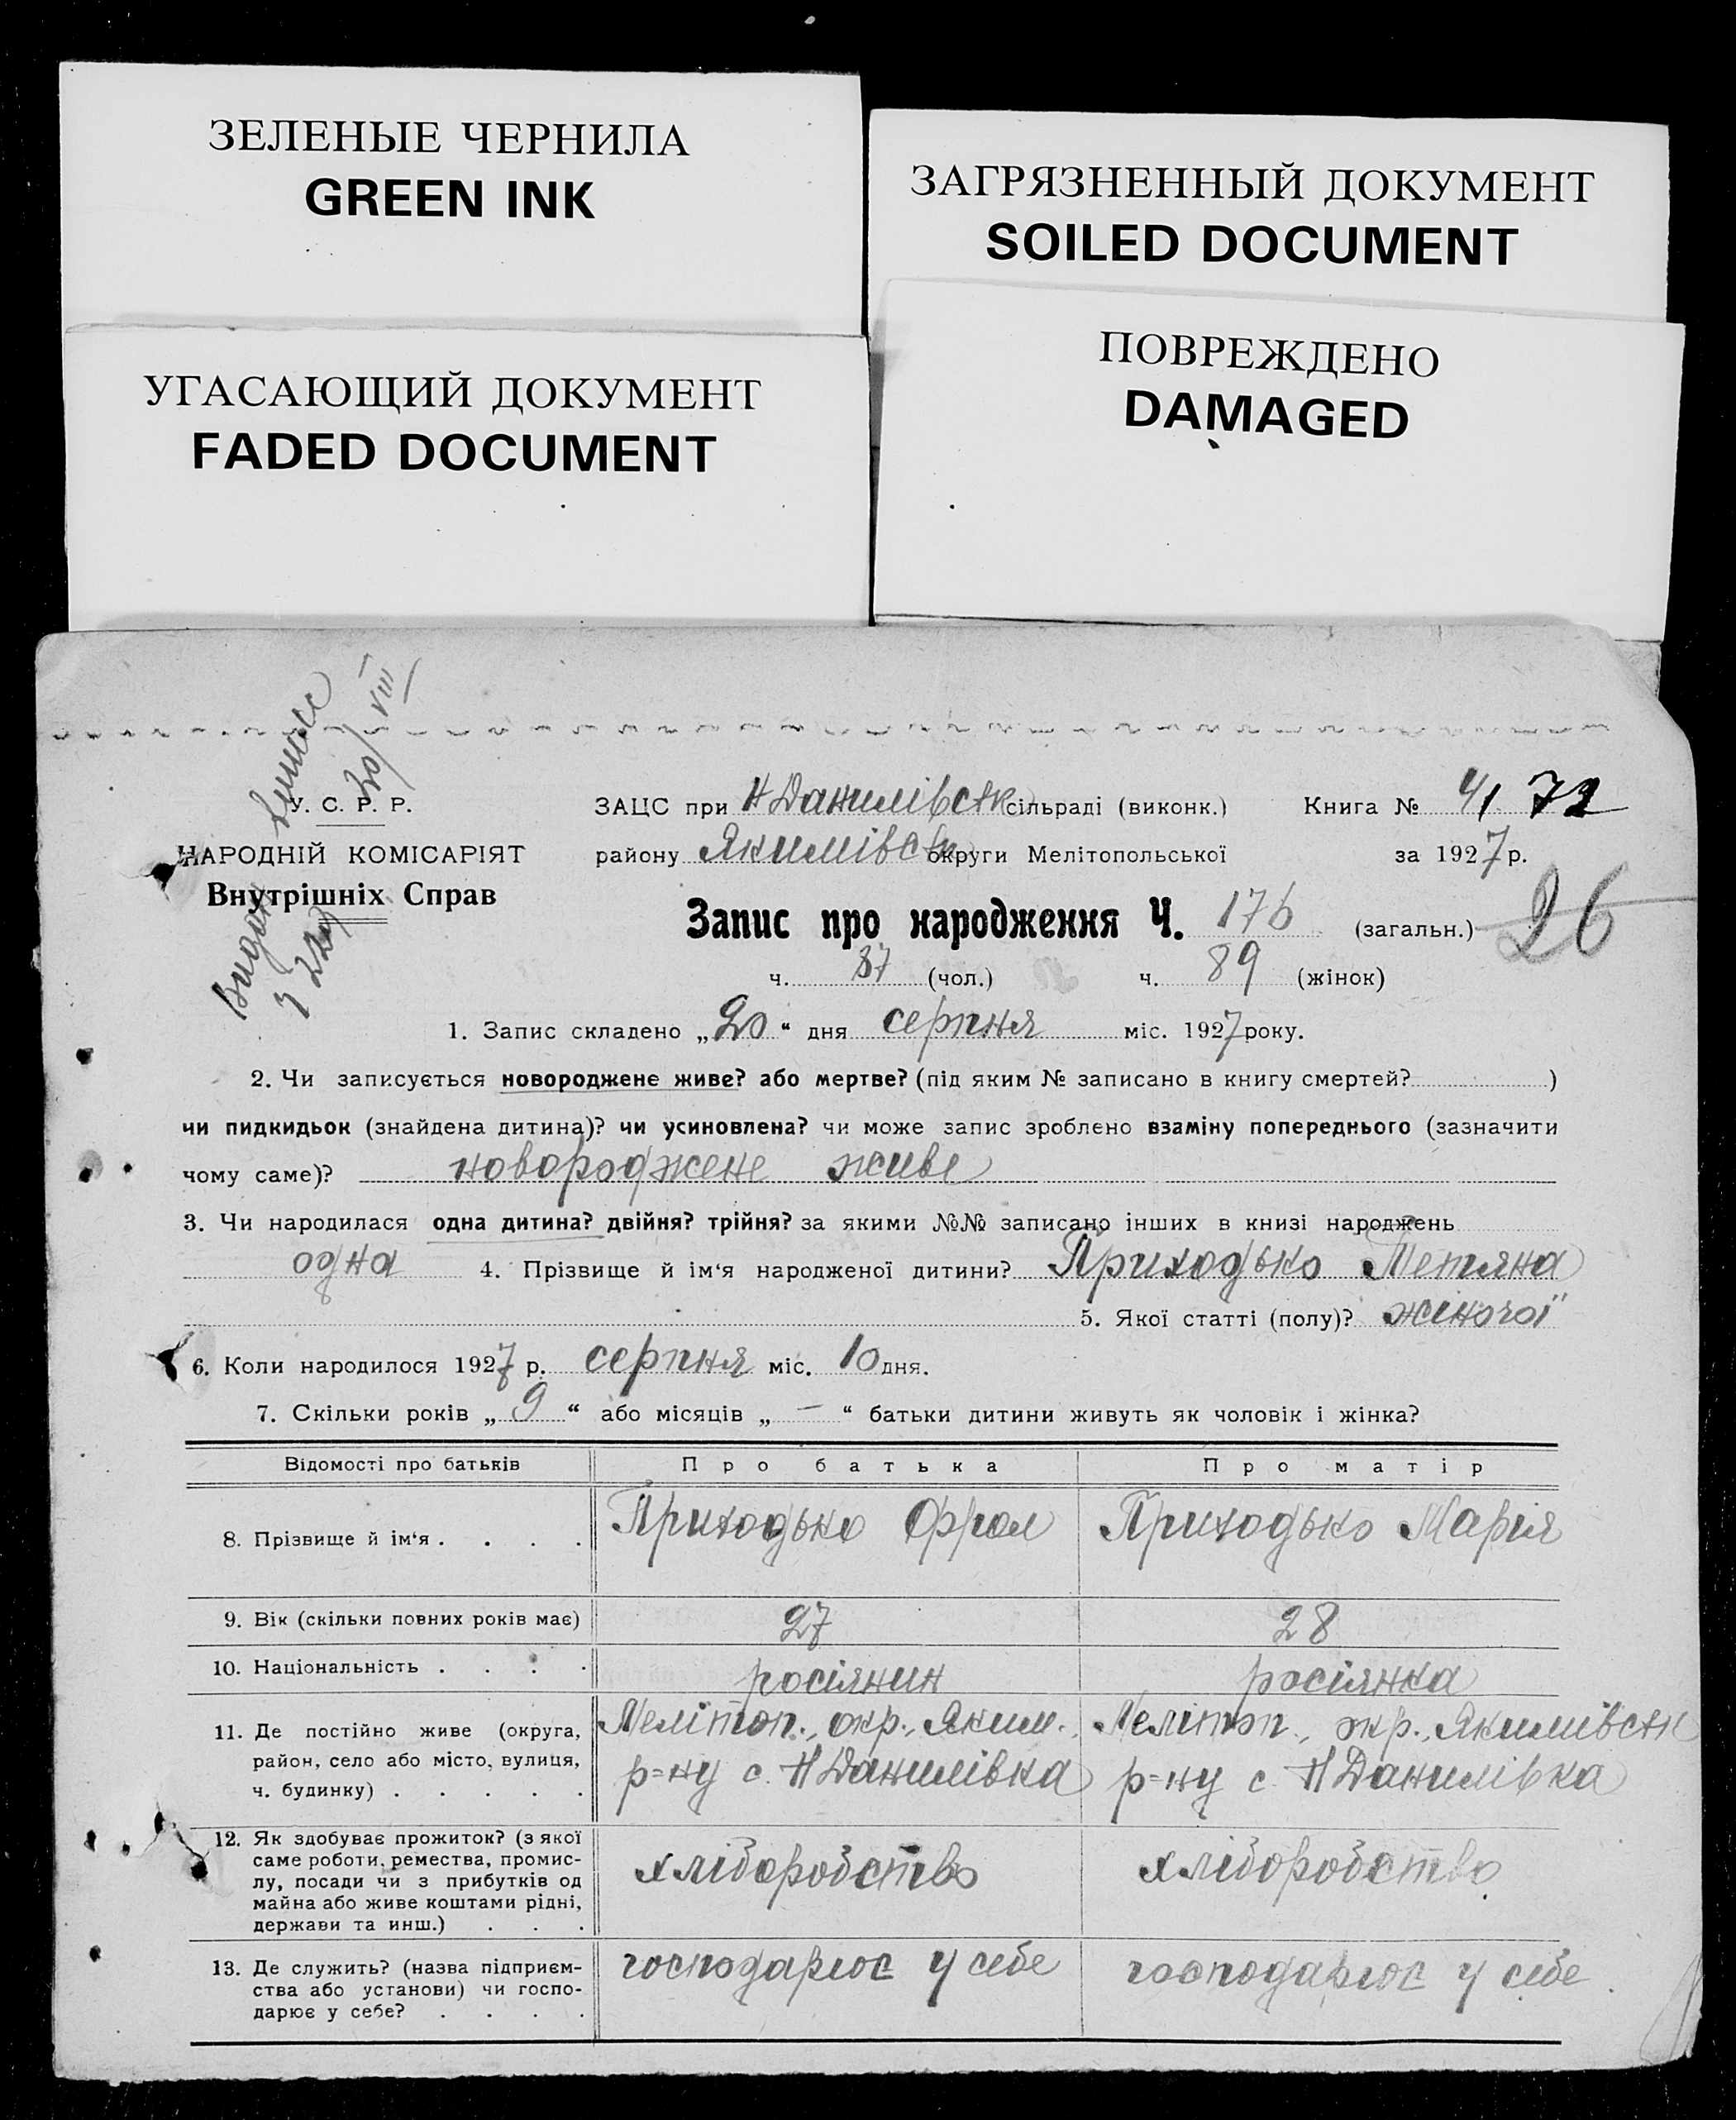 ЗЕЛЕНЫЕ ЧЕРНИЛА
GREEN INK
ЗАГРЯЗНЕННЫЙ ДОКУМЕНТ
SOILED DOCUMENT
УГАСАЮЩИЙ ДОКУМЕНТ
FADED DOCUMENT
ПОВРЕЖДЕНО
DAMAGED
30/VIII
У. С. Р. Р.
НАРОДНІЙ КОМІСАРІЯТ
Внутрішніх Справ
ЗАЦС при Н Данилівськ сільраді (виконк.) Книга № 4/ 72
району Якимівськ округи Мелітопольської за 1927 р.
Запис про народження Ч. 176 (загальн.) 26
ч. 87 (чол.) ч. 89 (жінок)
1. Запис складено „20“ дня серпня міс. 1927 року.
2. Чи записується новороджене живе? або мертве? (під яким № записано в книгу смертей? )
чи пидкидьок (знайдена дитина)? чи усиновлена? чи може запис зроблено взаміну попереднього (зазначити
чому саме)? новороджене живе
3. Чи народилася одна дитина? двійня? трійня? за якими №№ записано інших в книзі народжень
одна 4. Прізвище й ім‘я народженої дитини? Приходько Тетяна
5. Якої статті (полу)? жіночої
6. Коли народилося 1927 р. серпня міс. 10 дня.
7. Скільки років „9“ або місяців „—“ батьки дитини живуть як чоловік і жінка?
Відомості про батьків Про батька Про матір
8. Прізвище й ім‘я . . . . Приходько Фрол Приходько Марія
9. Вік (скільки повних років має) 27 28
10. Національність . . . . росіянин росіянка
11. Де постійно живе (округа, Мелітоп., окр., Яким. Меліпоп., окр., Якимівськ
район, село або місто, вулиця, р=ну с. Н Данилівка р=ну с. Н Данилівка
ч. будинку) . . . . .
12. Як здобуває прожиток? (з якої
саме роботи, ремества, промис-
лу, посади чи з прибутків од хліборобство хліборобство
майна або живе коштами рідні,
держави та инш.) . . .
13. Де служить? (назва підприєм- господарює у себе господарює у себе
ства або установи) чи госпо-
дарює у себе? . . . .